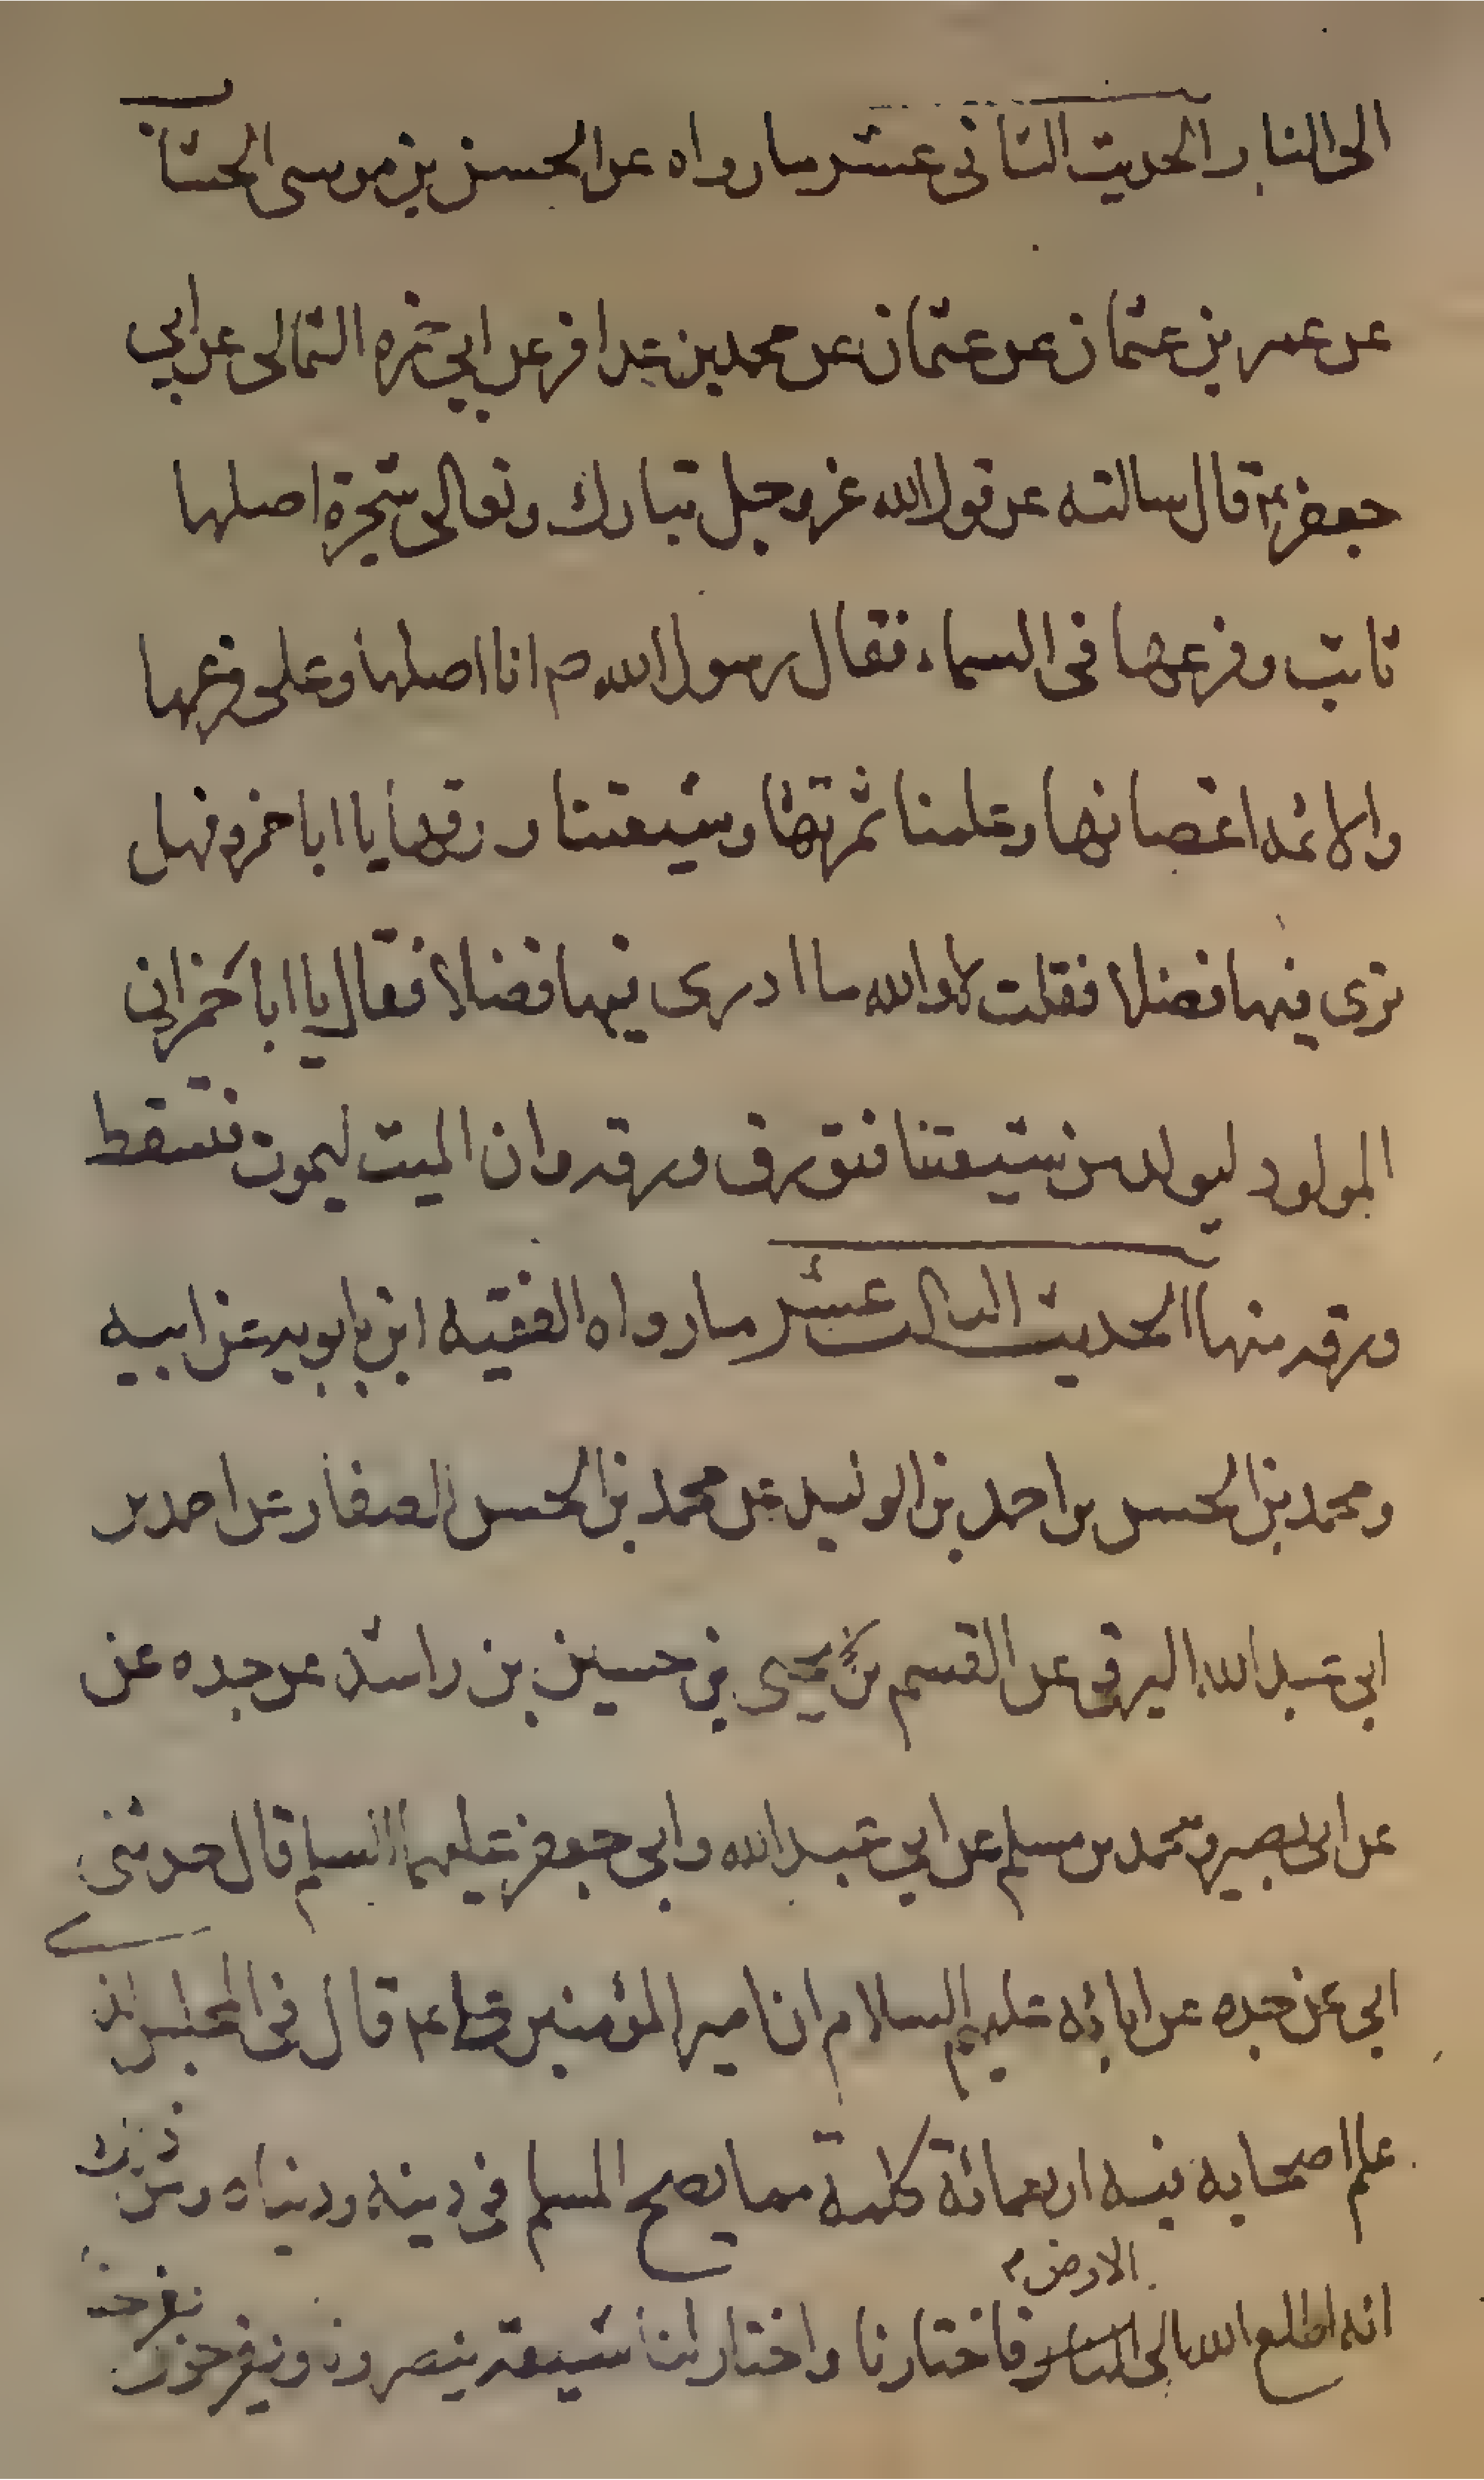 الى النار الحديث الثانى عشر ما رواه عن الحسن بن موسى الخشاب
عن عمر بن عثمان عن عثمان عن محمد بن عذافر عن ابي حمزه الثمالى عن ابي
جعفر ع قال سالته عن قول الله عز وجل تبارك وتعالى شجرة اصلها
ثابت وفرعها فى السماء فقال رسول الله ص انا اصلها وعلى فرعها
والائمه اغصانها وعلمنا ثمرتها وشيعتنا ورقها يا ابا حمزه فهل
ترى فيها فضلا فقلت لا والله ما ادرى فيها فضلا فقال يا ابا حمزه ان
المولود ليولد من شيعتنا فتورق ورقه وان الميت ليموت فتسقط
ورقه منها الحديث الثالث عشر ما رواه الفقيه ابن بابويه عن ابيه
ومحمد بن الحسن بن احمد بن الوليد عن محمد بن الحسن الصفار عن احمد بن
ابى عبد الله البرقى عن القسم بن يحيى بن حسين بن راشد عن جده عن
عن ابى بصير ومحمد بن مسلم عن ابي عبد الله وابى جعفر عليهما السلم قال حدثنى
ابى عن جده عن ابائه عليهم السلام ان امير المؤمنين ع قال فى المجلس
علم اصحابه فيه اربعمائة كلمة مما يصح المسلم فى دينه ودنياه ومن ذلك
انه اطلع الله الى الارض فاختارنا واختار لنا شيعة ينصرونا ويفرحون